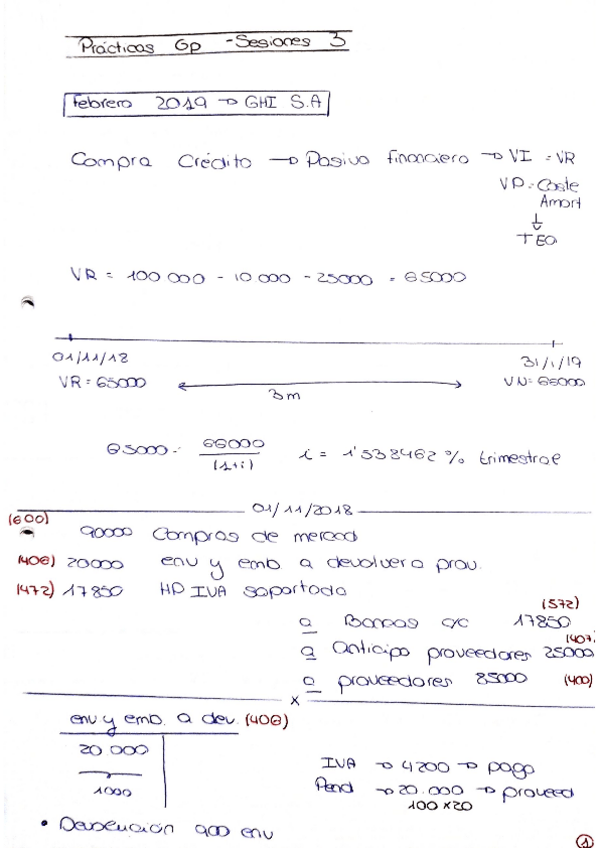 Prácticas Gp - Sesiones 3
Febrero 2019 → GHI S.A
Compra Crédito → Pasivo financiero → VI = VR
VP = Coste
Amort
↓
TEO
VR = 100 000 - 10 000 - 25000 = 65000
01/11/18 31/1/19
VR = 65000 3m VN = 66000
65000 = 66000 / (1+i) i = 1'538462 % trimestral
01/11/2018
(600) 90000 Compras de mercad
(406) 20000 env y emb. a devolver a prov.
(472) 17850 HP IVA soportado
(572)
a Bancos c/c 17850
(407)
a anticipo proveedores 25000
a proveedores 85000 (400)
x
env y emb. a dev. (406)
20 000
1000
IVA → 4200 → pago
Pend → 20.000 → proveed
100 x 20
• Devolución 900 env
1